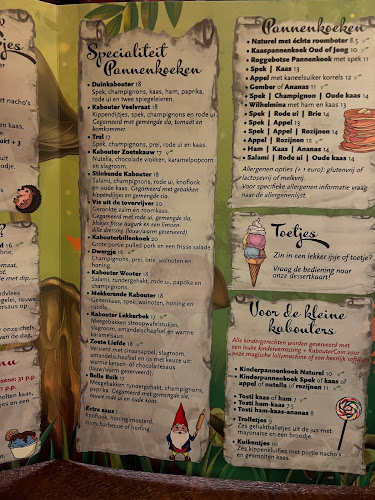 Specialiteit
Pannenkoeken
• Duinkabouter 18
Spek, champignons, kaas, ham, paprika,
rode ui en twee spiegeleieren.
• Kabouter Veelvraat 18
Kippendijtjes, spek, champignons en rode ui.
Gegarneerd met gemengde sla, tomaat en
komkommer.
• Trol 17
Spek, champignons, prei, rode ui en kaas.
• Kabouter Zoetekauw 17
Nutella, chocolade vlokken, karamelpopcorn
en slagroom.
• Stinkende Kabouter 18
Salami, champignons, rode ui, knoflook
en oude kaas. Gegarneerd met gebakken
kippendijtjes en gemengde sla.
• Vis uit de tovervijver 20
Gerookte zalm en roomkaas.
Gegarneerd met rode ui, gemengde sla,
blokjes frisse augurk en een limoen-
dille dressing (lauw/warm geserveerd)
• Kabouterbillenkoek 20
Grote portie pulled pork en een frisse salade.
• Dwergje 16
Champignons, prei, brie, walnoten en
honing.
• Kabouter Wouter 18
Salami, rundergehakt, rode ui, paprika en
champignons.
• Mekkerende Kabouter 18
Geitenkaas, spek, walnoten, honing en
rucola.
• Kabouter Lekkerbek 17
Meegebakken stroopwafelstukjes,
slagroom, amandelschaafsel en warme
karamelsaus.
• Zoete Liefde 18
Verse sinaasappel, slagroom,
amandelschaafsel en is met keuze uit:
warme kersen- of chocoladesaus
(lauw/warm geserveerd).
• Belle Baik 17
Meegebakken rundergehakt, champignons,
paprika. Gegarneerd met gemengde sla,
rauwe rode ui en oude kaas.
Extra saus:
Knoflook, honingmosterd,
curry, barbecue of honing.
Pannenkoeken
• Naturel met échte roomboter 8.5
• Kaaspannenkoek Oud of Jong 10
• Roggebotse Pannenkoek met spek 11
• Spek | Kaas 13
• Appel met kaneelsuiker korrels 12
• Gember of Ananas 11
• Spek | Champignon | Oude kaas 14
• Wilhelmina met ham en kaas 13
• Spek | Rode ui | Brie 14
• Spek | Appel 13
• Spek | Appel | Rozijnen 14
• Appel | Rozijnen 12
• Ham | Kaas | Ananas 14
• Salami | Rode ui | Oude kaas 14
Allergenen opties (+ 1 euro): glutenvrij of
lactosevrij of melkvrij.
Voor specifieke allergenen informatie vraag
naar de allergenenlijst.
Toetjes
Zin in een lekker ijsje of toetje?
Vraag de bediening naar
onze dessertkaart!
Voor de kleine
kabouters
Alle kindergerechten worden geserveerd met
een leuke kinderverrassing + KabouterCoin voor
onze magische lollymachine of een heerlijk softijsje!
• Kinderpannenkoek Naturel 10
• Kinderpannenkoek Spek of kaas of
appel of nutella of rozijnen 11
• Tosti kaas of ham 7
• Tosti ham-kaas 7.5
• Tosti ham-kaas-ananas 8
• Trolletjes
Zes gehaktballetjes uit de jus met
mayonaise en een broodje.
• Kuikentjes 10
Zes kippenkluifjes met portie nacho's
en gesmolten kaas.